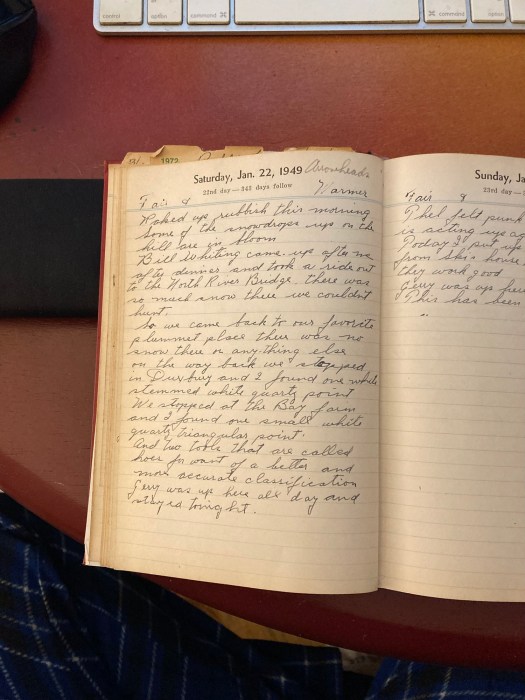 control
option
command ⌘
⌘ command
option
1972
Saturday, Jan. 22, 1949 Arrowheads
22nd day—343 days follow
Warmer
Fair &
Raked up rubbish this morning
Some of the snowdrops up on the
hill are in bloom
Bill Whiting came up after me
after dinner and took a ride out
to the North River Bridge, there was
so much snow there we couldn't
hunt.
So we came back to our favorite
plummet place there was no
snow there or any-thing else
on the way back we stopped
in Duxbury and I found one white
stemmed white quartz point
We stopped at the Bay farm
and I found one small white
quartz triangular point.
And two tools that are called
hoes for want of a better and
more accurate classification
Gerry was up here all day and
stayed tonight.
Sunday, Ja
23rd day—
Fair
Phel felt punk
is acting up ag
Today I put up
from house
they work good
Gerry was up here
This has been